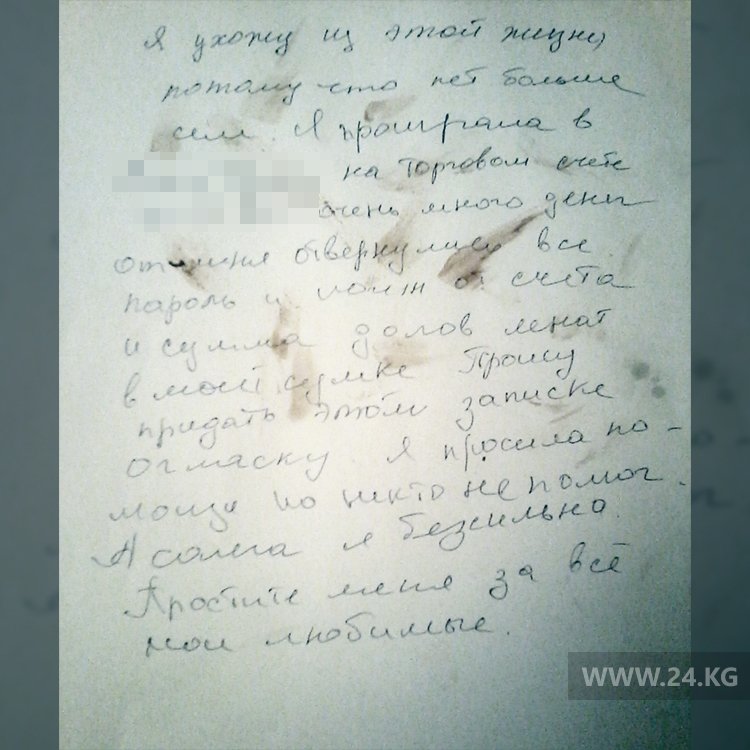 Я ухожу из этой жизни,
потому что нет больше
сил. Я проиграла в
на торговом счете
очень много денег
от меня отвернулись все
пароль и логин от счета
и сумма долов лежат
в моей сумке Прошу
придать этой записке
огласку. Я просила по-
мощи но никто не помог.
А сама я безсильна.
Простите меня за всё
мои любимые.
WWW.24.KG